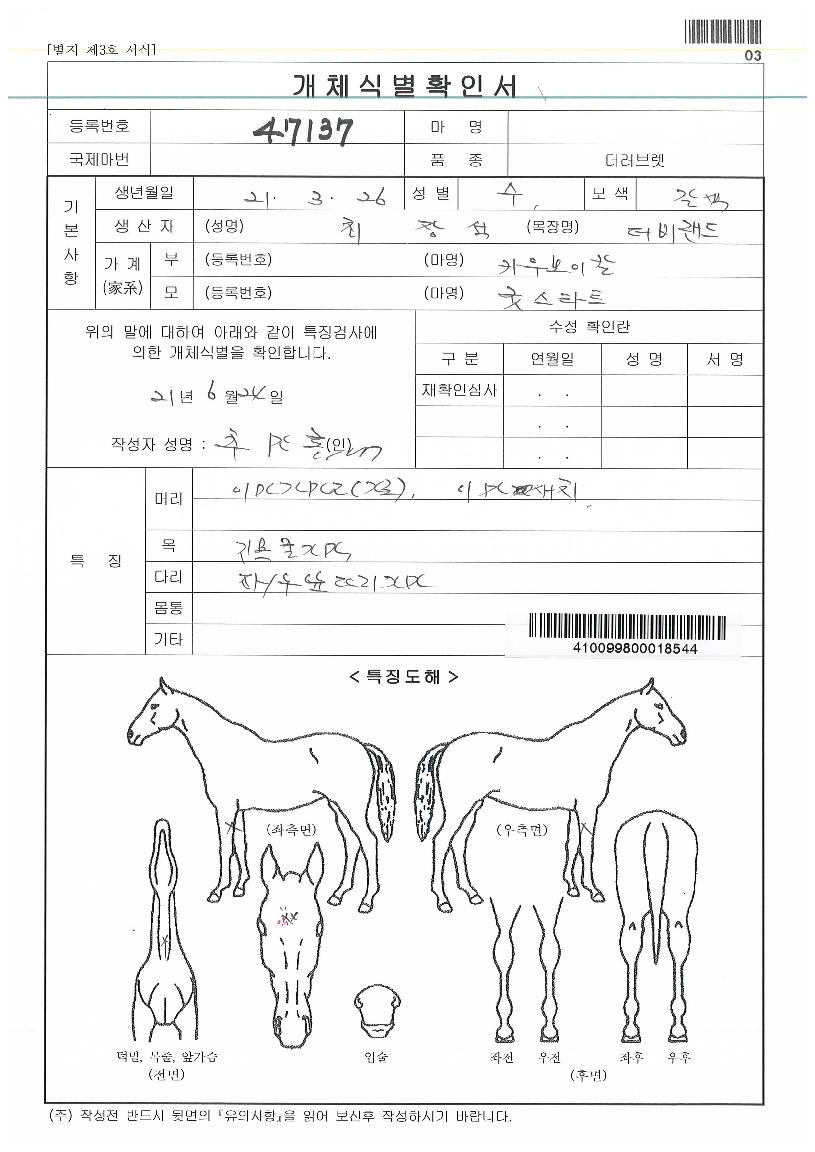 03
[별지 제3호 서식]
개체식별확인서
등록번호 47137 마 명
국제마번 품 종 더러브렛
기본사항
생년월일 21. 3. 26 성별 수 모색 갈색
생산자 (성명) 최 (목장명) 더비랜드
가계(家系) 부 (등록번호) (마명) 카우보이칼
모 (등록번호) (마명) 굿스타트
위의 말에 대하여 아래와 같이 특징검사에
의한 개체식별을 확인합니다.
21년 6월 24일
작성자 성명 : (인)
수성 확인란
구분 연월일 성명 서명
재확인심사 . .
. .
. .
특 징
머리
목
다리
몸통
기타
410099800018544
< 특징도해 >
(좌측면) (우측면)
턱밑, 목줄, 앞가슴 입술 좌전 우전 좌후 우후
(전면) (후면)
(주) 작성전 반드시 뒷면의 『유의사항』을 읽어 보신후 작성하시기 바랍니다.